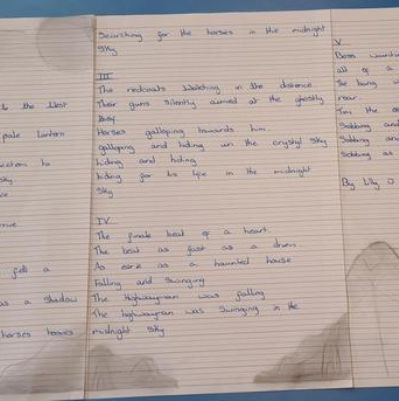 the West
pale lantern
to
a
as a shadow
horses hooves
Searching for the horses in the midnight
sky
III
The redcoats watching in the distance
Their guns silently aimed at the ghostly
Boy
Horses galloping towards him
galloping and hiding in the crystal sky
hiding and hiding
hiding for his life in the midnight
Sky
IV
The finale beat of a heart
The beat as fast as a drum
As eerie as a haunted house
Falling and Swinging
The Highwayman was falling
The highwayman was Swinging in the
midnight sky
V
Bess
all of a
The bang
roar
Tim the
Sobbing and
Sobbing
Sobbing as
By Lily O